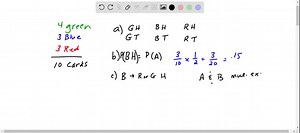 4 green
3 Blue
3 Red
10 cards
a) GH BH RH
GT BT RT
b) P(A) 3/10 × 1/2 = 3/20 = .15
c) B → R or G H A & B mut. ex.